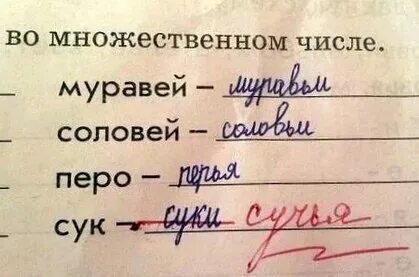 во множественном числе.
муравей – муравьи
соловей – соловьи
перо – перья
сук – суки сучья